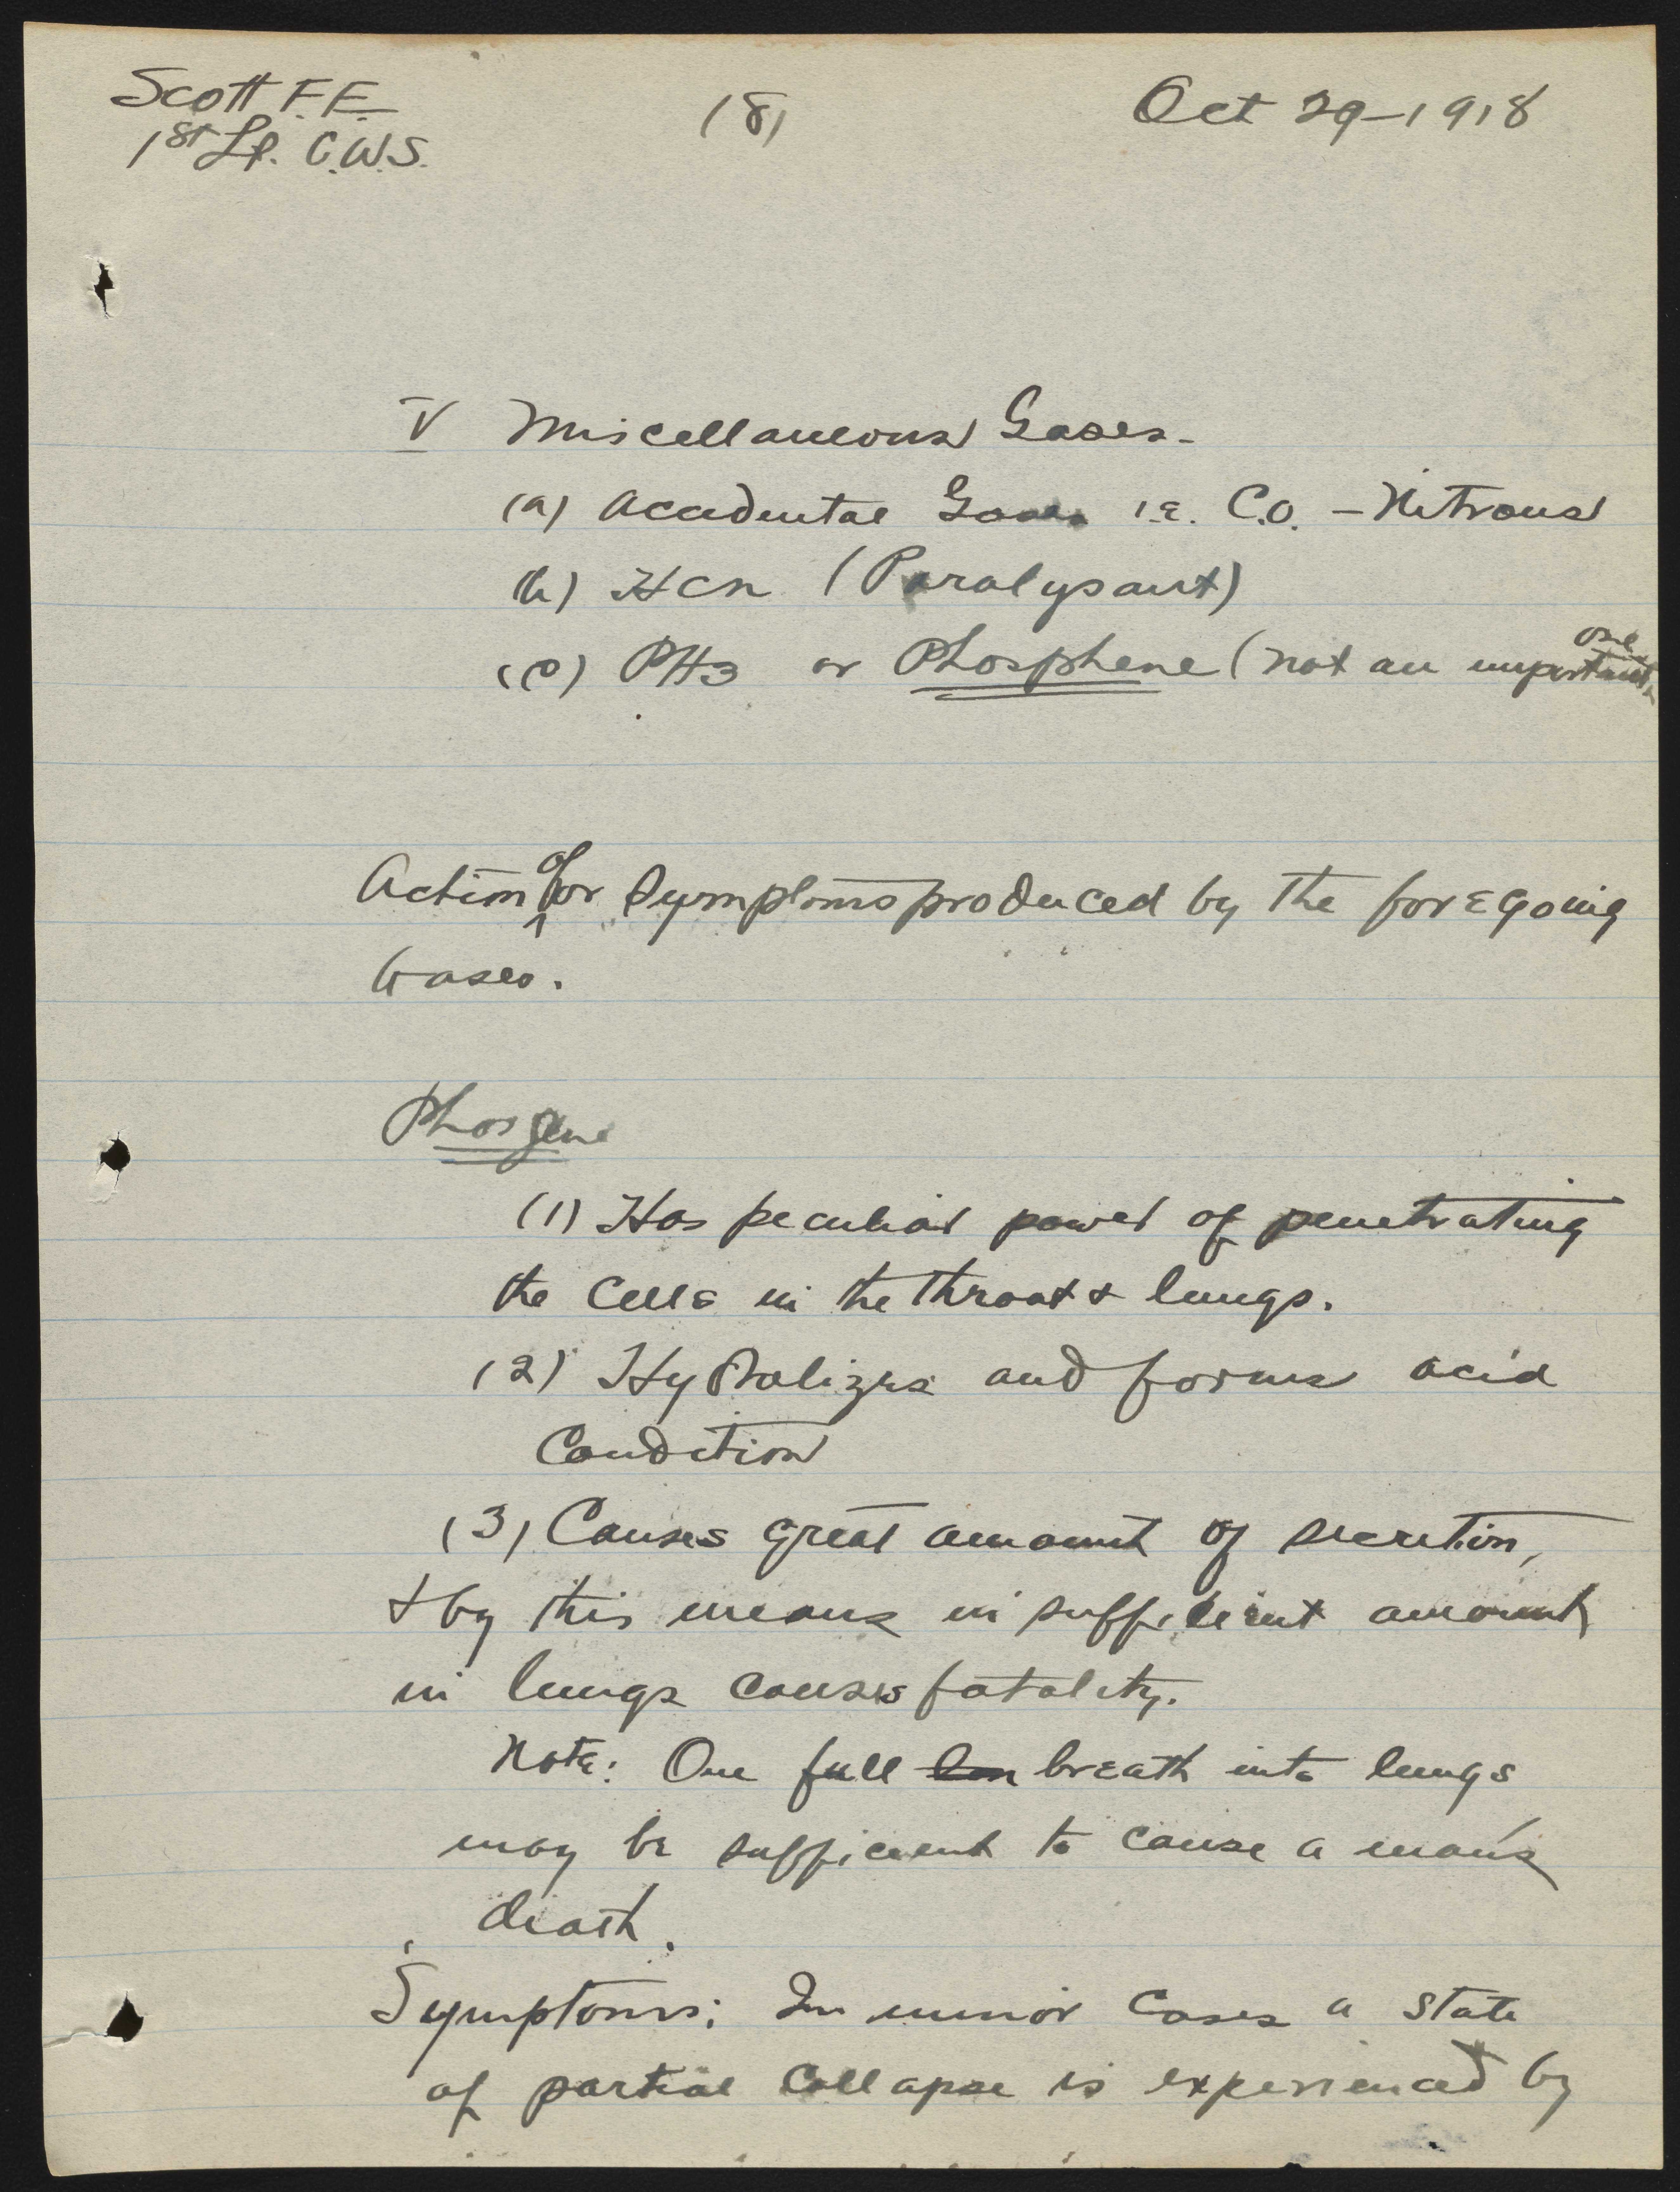 Scott F.F.
1st Lt. C.W.S.
(8)
Oct 29-1918
V Miscellaneous Gases-
(a) Accidental Gases i.e. C.O. - Nitrous
(b) HCN (Paralysant)
(c) PH3 or Phosphene (not an important one
Action of or Symptoms produced by the foregoing
Gases.
Phosgene
(1) Has peculiar power of penetrating
the cells in the throat & lungs.
(2) Hydralizes and forms acid
Condition
(3) Causes great amount of secretion,
& by this means in sufficient amount
in lungs causes fatality.
Note: One full breath into lungs
may be sufficient to cause a man's
death.
Symptoms; In minor cases a state
of partial collapse is experienced by